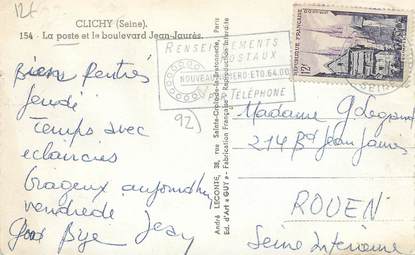 12f
CLICHY (Seine).
154 - La poste et le boulevard Jean-Jaurès.
RENSEIGNEMENTS
POSTAUX
NOUVEAU NUMERO ETO.64.00
PAR TÉLÉPHONE
12F
(92)
Biens rentrés
jeudi
temps avec
eclaircies
Orageux aujourd'hui
vendredi
Good Bye Jean
André LECONTE, 38, rue Sainte-Croix-de-la-Bretonnerie, Paris
Ed. d'Art "GUY" - Fabrication Française - Reproduction Interdite
Madame G Legrand
214 Bd Jean Jaurès
ROUEN
Seine Inférieure